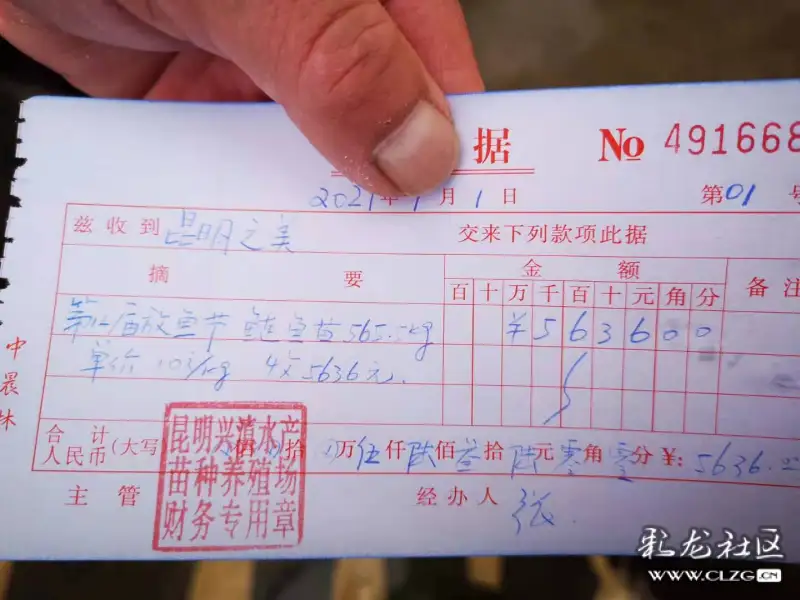 据 No 4916688
2021年1月1日 第01号
兹收到 昆明之美 交来下列款项此据
摘要 金额 备注
百十万千百十元角分
第12届放鱼节 鲢鱼苗565.5kg ¥563600
单价10元/kg 5636元.
合计人民币(大写) 佰 拾 万伍仟陆佰叁拾陆元零角零分¥:5636.
主管 经办人 张
昆明兴滇水产
苗种养殖场
财务专用章
中晨林
彩龙社区
WWW.CLZG.CN